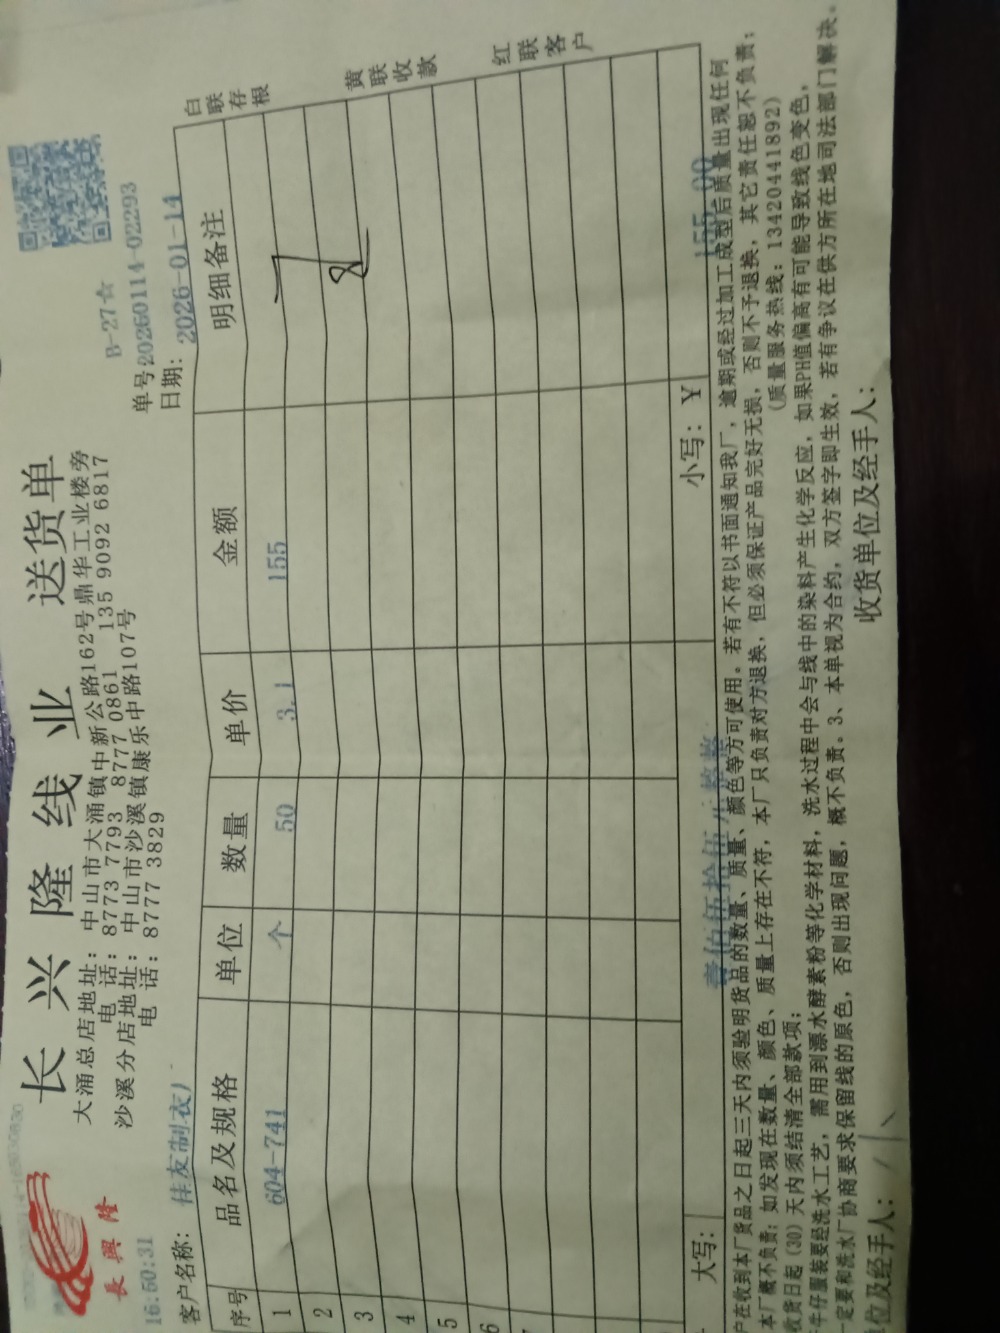 长兴隆线业 送货单
長興隆
大涌总店地址：中山市大涌镇中新公路162号鼎华工业楼旁
电 话：8773 7793 8777 0861 135 9092 6817
沙溪分店地址：中山市沙溪镇康乐中路107号
电 话：8777 3829
B-27☆
单号20260114-02293
日期：2026-01-14
16:50:31
客户名称：佳友制衣)
序号 品名及规格 单位 数量 单价 金额 明细备注
1 604-741 个 50 3.1 155
2
3
4
5
6
大写：壹佰伍拾伍元整 小写：¥ 155.00
白联存根
黄联收款
红联客户
户在收到本厂货品之日起三天内须验明货品的数量、质量、颜色等方可使用。若有不符以书面通知我厂，逾期或经过加工成型后质量出现任何
本厂概不负责；如发现在数量、颜色、质量上存在不符，本厂只负责对方退换，但必须保证产品完好无损，否则不予退换，其它责任恕不负责；
收货日起（30）天内须结清全部款项；
（质量服务热线：13420441892）
牛仔服装要经洗水工艺，需用到漂水酵素粉等化学材料，洗水过程中会与线中的染料产生化学反应，如果PH值偏高有可能导致线色变色，
定要和洗水厂协商要求保留线的原色，否则出现问题，概不负责。3、本单视为合约，双方签字即生效，若有争议在供方所在地司法部门解决。
位及经手人： 收货单位及经手人：